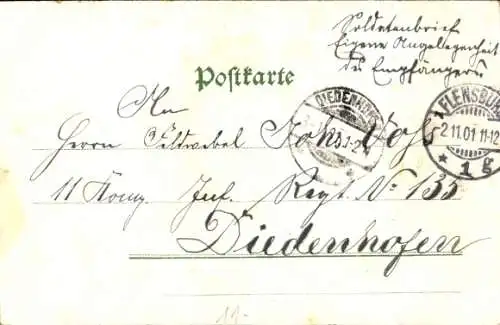 Soldatenbrief
Eigene Angelegenheit
des Empfängers
Postkarte
DIEDENHOFEN
FLENSBURG
2.11.01 11-12
* 1 g
An
Herrn Feldwebel Johs Voss
11 Komp Inf. Regt. No 135
Diedenhofen
11-